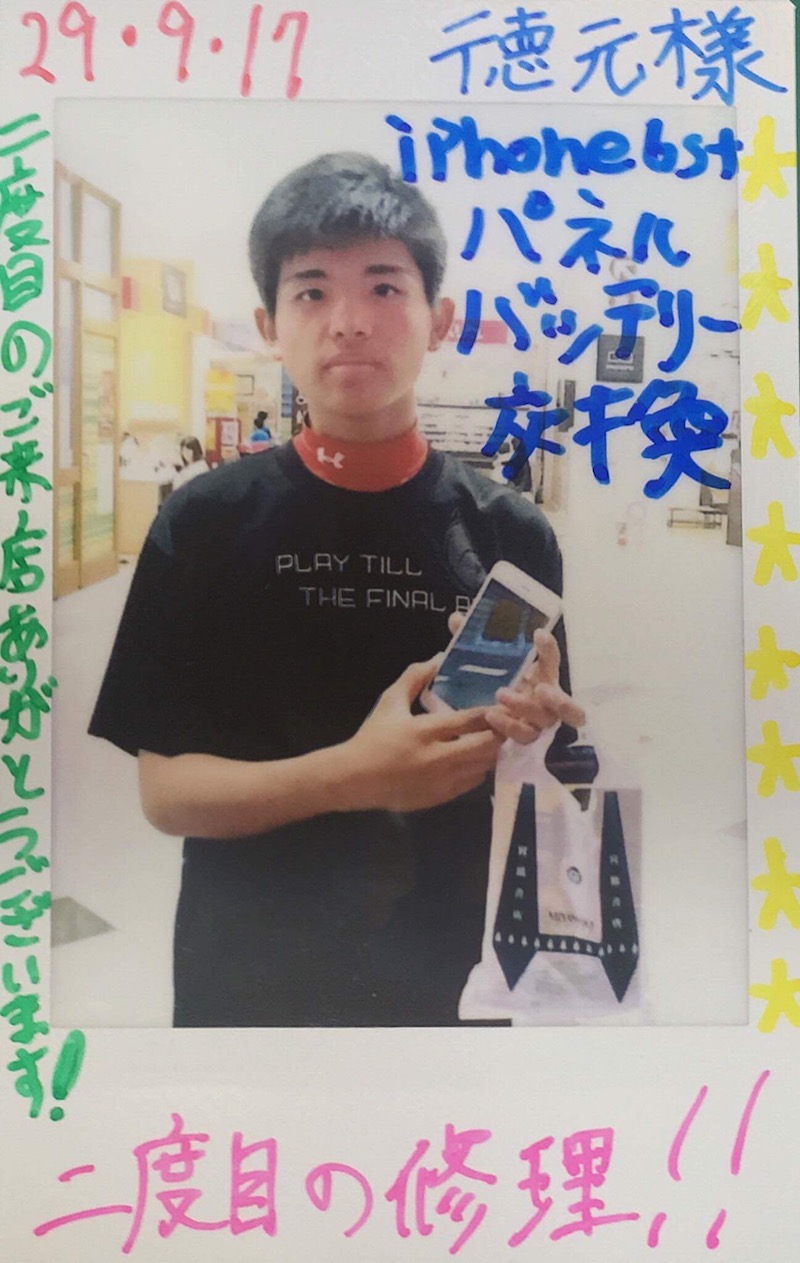 29・9・17
徳元様
iPhone6s+
パネル
バッテリー
交換
二度目のご来店ありがとうございます!
PLAY TILL
THE FINAL
二度目の修理!!